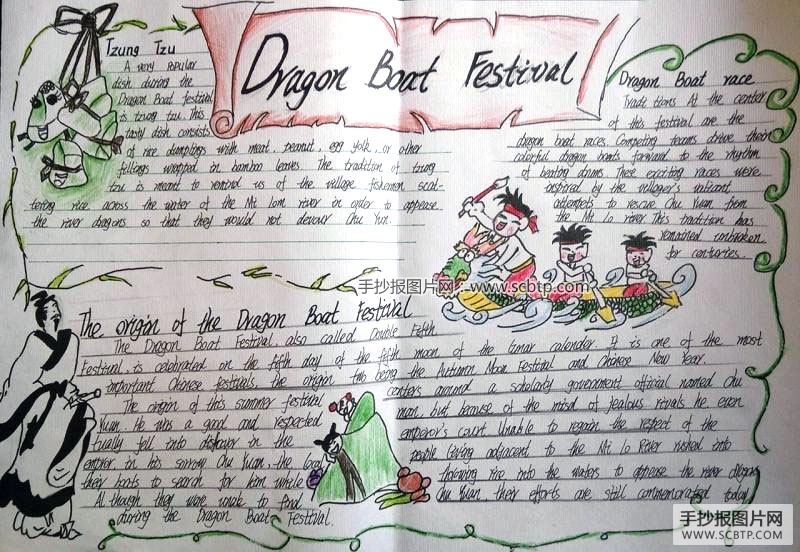 Dragon Boat Festival
Tzung Tzu
A very popular
dish during the
Dragon Boat festival
is tzung tzu. This
tasty dish consists
of rice dumplings with meat, peanut, egg yolk, or other
fillings wrapped in bamboo leaves. The tradition of tzung
tzu is meant to remind us of the village fishermen scat-
tering rice across the water of the Mi Lom river in order to appease
the river dragons so that they would not devour Chu Yun.
Dragon Boat race
Traditions At the center
of this festival are the
dragon boat races. Competing teams drive their
colorful dragon boats forward to the rhythm
of beating drums These exciting races were
inspired by the villager's valiant
attempts to rescue Chu Yuan from
the Mi Lo river This tradition has
remained unbroken
for centuries.
手抄报图片网:www.scbtp.com
The origin of the Dragon Boat Festival
The Dragon Boat Festival, also called Double Fifth
Festival, is celebrated on the fifth day of the fifth moon of the lunar calendar. It is one of the most
important Chinese festivals, the origin two being the Autumn Moon Festival and Chinese New Year.
The origin of this summer festival centers around a scholarly government official named Chu
Yuan. He was a good and respected man, but because of the misd of jealous rivals he even
tually fell into disfavor in the emperor's court Unable to regain the respect of the
empror in his sorrow Chu Yuan, the local people living adjacent to the Mi Lo River rushed into
their boats to search for him while throwing rice into the waters to appease the river dragons
Although they were unable to find Chu Yuan, their efforts are still commemorated today
during the Dragon Boat Festival.
手抄报图片网
WWW.SCBTP.COM